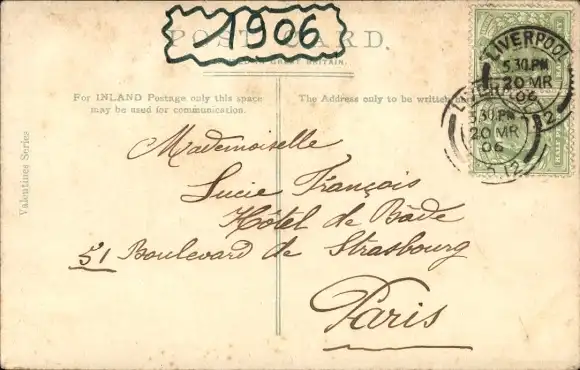 1906
POST CARD.
GREAT BRITAIN.
For INLAND Postage only this space
may be used for communication.
The Address only to be written
Valentines Series
LIVERPOOL
5 30.PM
20 MR
06
5 30.PM
20 MR
06
12
Mademoiselle
Lucie François
Hôtel de Bade
51 Boulevard de Strasbourg
Paris